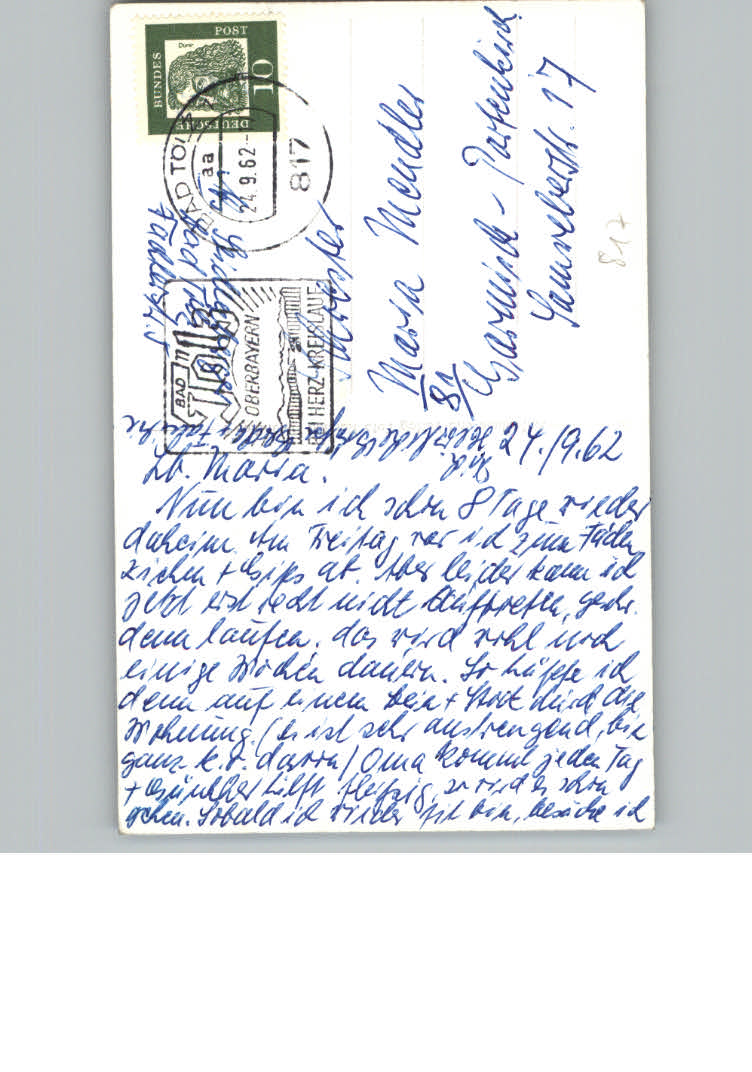 DEUTSCHE
BUNDES
POST
10
Dürer
BAD TÖLZ
aa
24.9.62
817
BAD
Tölz
OBERBAYERN
HERZ-KREISLAUF
Bad Tölz
Schwester
Maria Mendler
81
Garmisch-Partenkirch
17
817
24./9.62
Lb. Maria.
Nun bin ich schon 8 Tage wieder
daheim. Am Freitag war ich zum Fäden
ziehen + Gips ab. Aber leider kann ich
jetzt erst recht nicht auftreten, geschw.
denn laufen. das wird wohl noch
einige Wochen dauern. So hüpfe ich
denn auf einem Bein + Stock durch die
Wohnung. (es ist sehr anstrengend, bin
ganz k.o. davon) Oma kommt jeden Tag
+ Günther hilft fleißig, so wird es schon
gehen. Sobald ich wieder fit bin, besuche ich